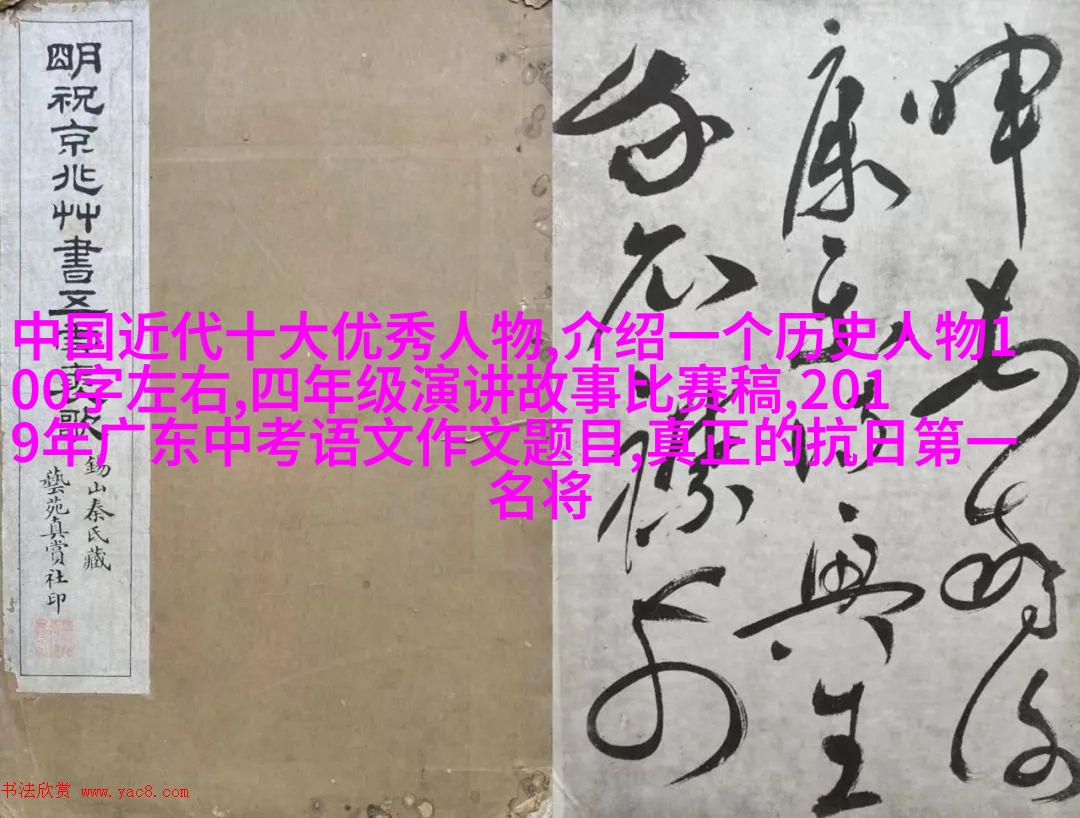 朙祝京兆艸書五雲裘歌
錫山秦氏藏
藝苑真賞社印
暉頓驚謝
康樂詩興生
我衣襟前
中国近代十大优秀人物,介绍一个历史人物1
00字左右,四年级演讲故事比赛稿,201
9年广东中考语文作文题目,真正的抗日第一
名将
书法欣赏 www.yac8.com